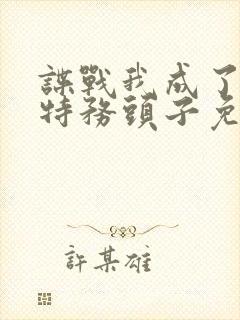 諜戰我成了
特務頭子免
許某雄